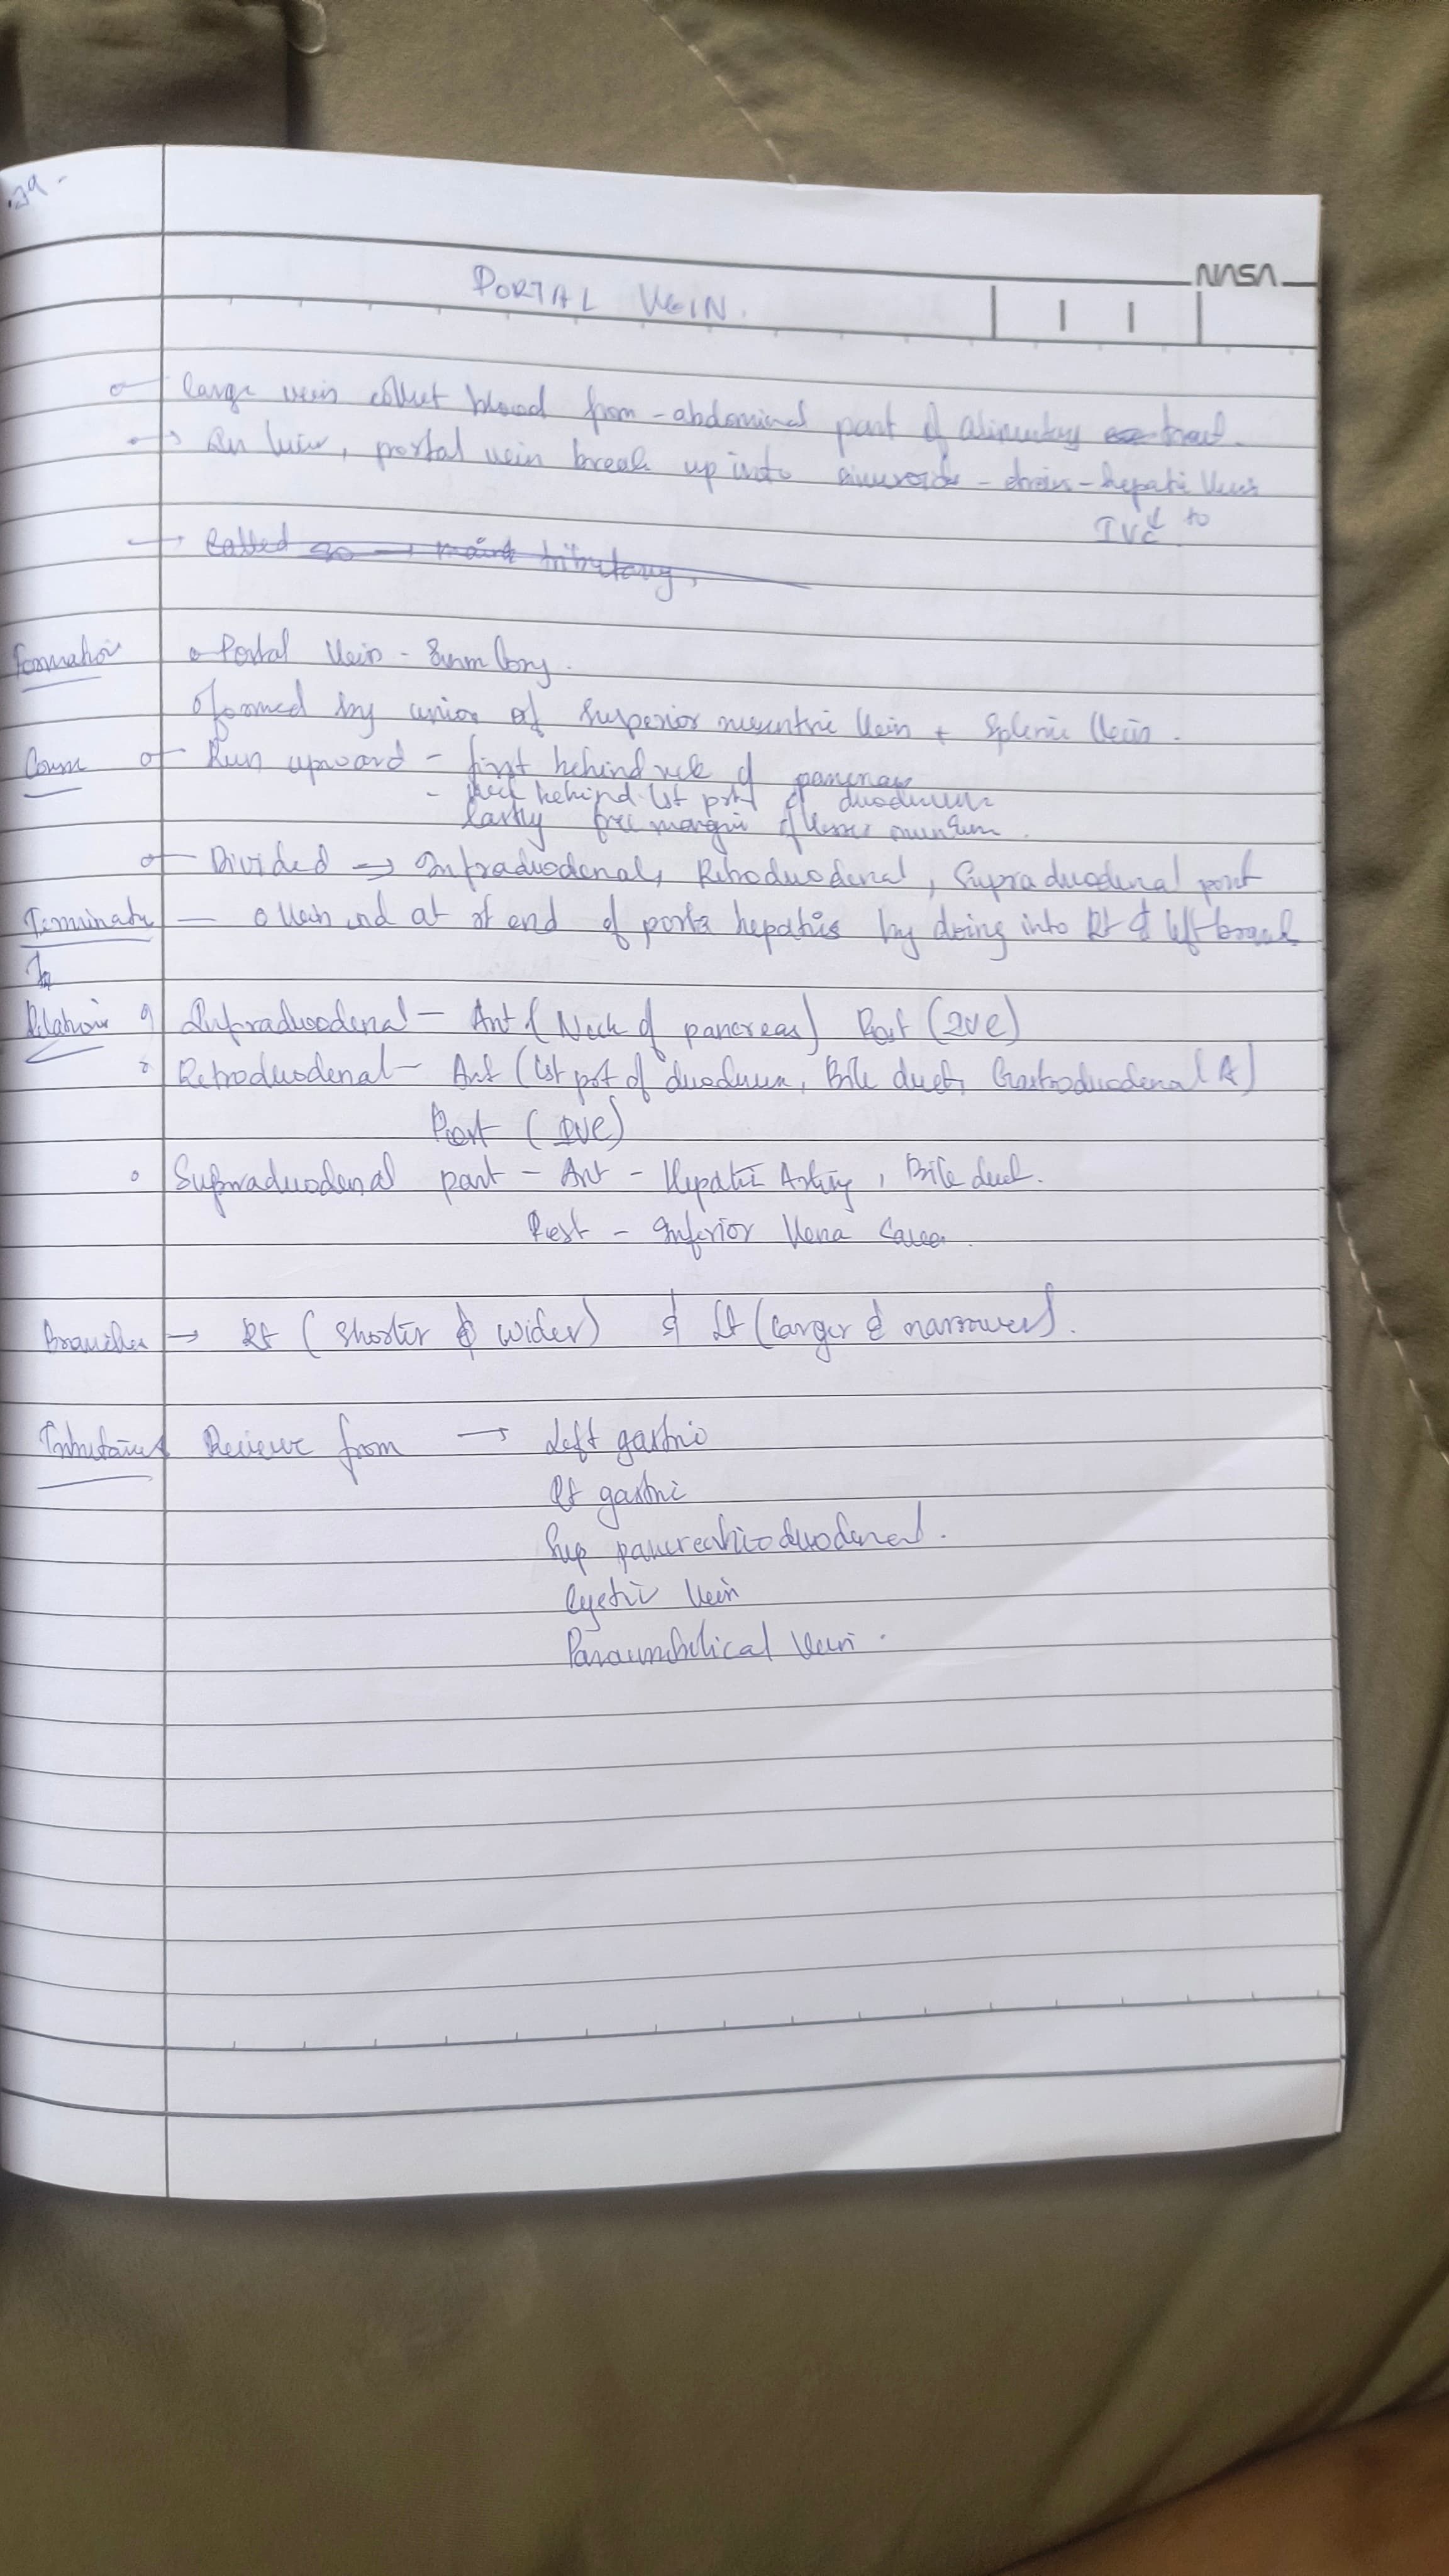 NASA
PORTAL VEIN.
Large vein collect blood from - abdominal part of alimentry tract.
→ In liver, portal vein break up into sinusoids - drain - hepatic veins
↓ to
IVC
→ Called so → main tributary,
Formation o Portal Vein - 8cm long.
o formed by union of Superior mesentric Vein + Splenic Vein.
Course o Run upward - first behind neck of pancreas
- behind 1st part of duodenum
lastly free margin of lesser omentum.
o Divided → Infraduodenal, Retroduodenal, Supraduodenal part
— o Vein end at rt end of porta hepatis by into Rt & left branch
Relation o Infraduodenal — Ant (Neck of pancreas) Post (IVC)
o Retroduodenal — Ant (1st part of duodenum, Bile duct, Gastroduodenal (A)
Post (IVC)
o Supraduodenal part - Ant - Hepatic Artery, Bile duct.
Post - Inferior Vena Cava.
Branches → Rt (Shorter & wider) & Lt (Larger & narrower).
Tributaries Receive from → Left gastric
Rt gastric
Sup pancreaticoduodenal.
Cystic Vein
Paraumbilical Vein.